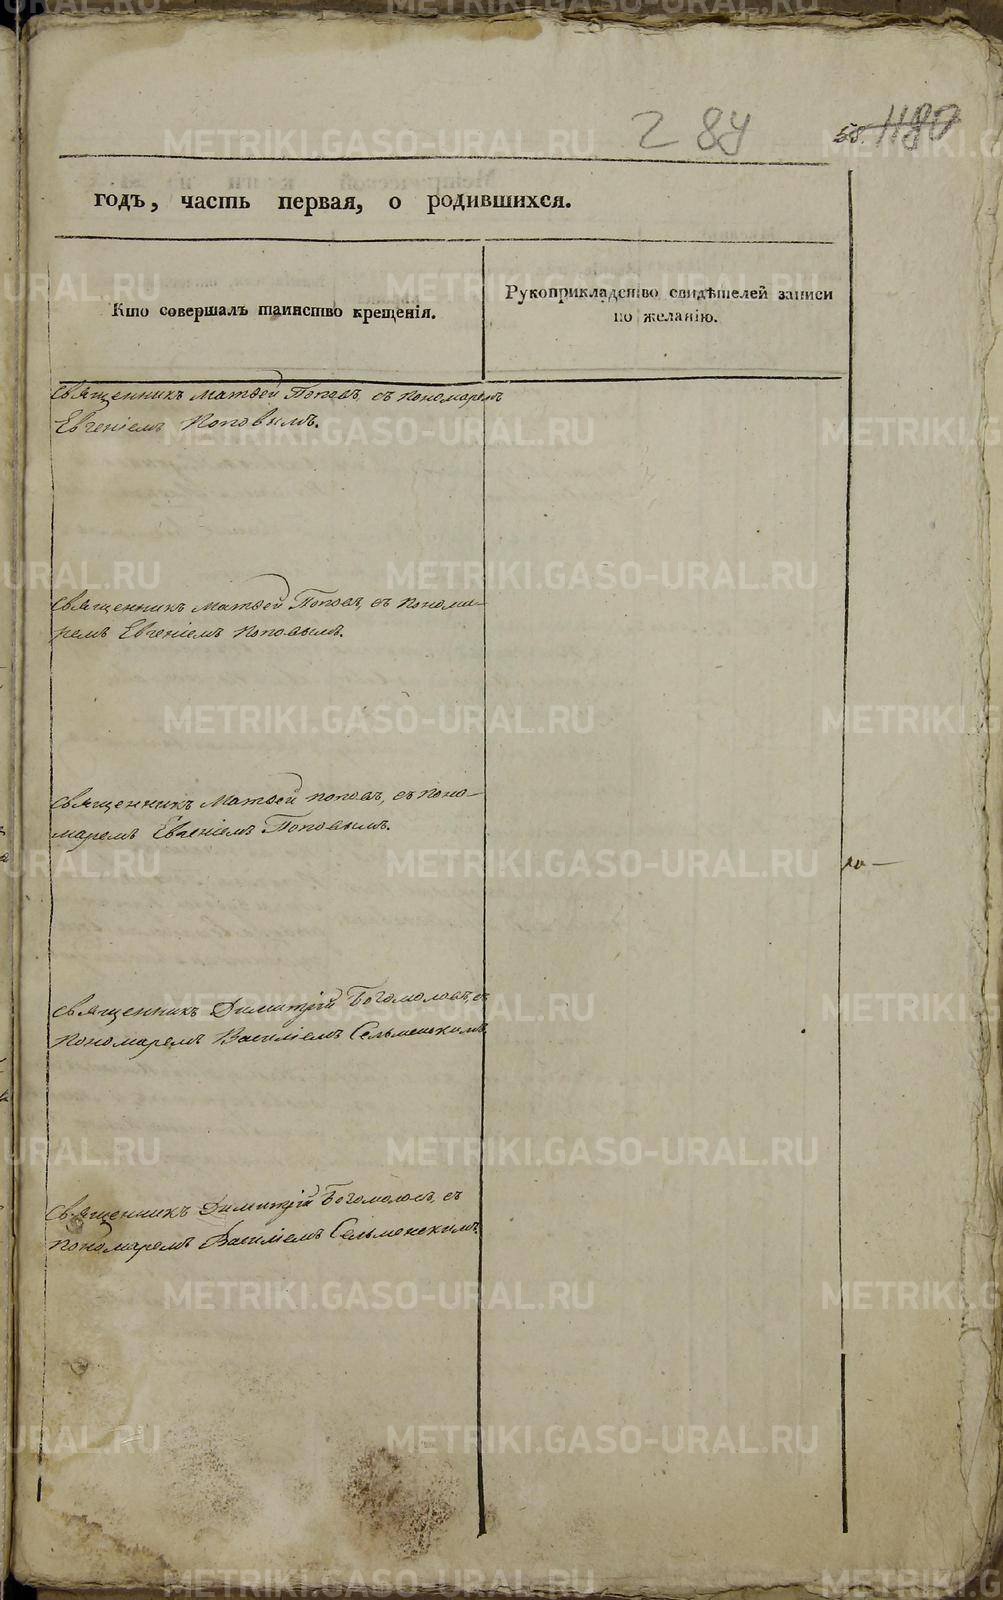 284
58. 1180
годъ, часть первая, о родившихся.
Кто совершалъ таинство крещенія.
Рукоприкладство свидѣтелей записи
по желанію.
Священникъ Матвей Поповъ, съ пономаремъ
Евгеніемъ Поповымъ.
Священникъ Матвей Поповъ, съ понома-
ремъ Евгеніемъ Поповымъ.
Священникъ Матвей Поповъ, съ поно-
маремъ Евгеніемъ Поповымъ.
Священникъ Димитрій Богомоловъ, съ
пономаремъ Василіемъ Сельменскимъ.
Священникъ Димитрій Богомоловъ, съ
пономаремъ Василіемъ Сельменскимъ.
METRIKI.GASO-URAL.RU